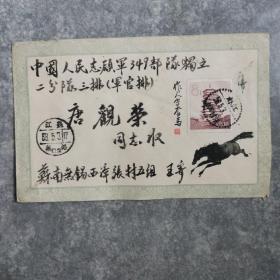 中國人民志願軍349部隊獨立
二分隊三排(軍官排)
唐觀榮
同志收
蘇南無錫西漳張村五組 王寄
作人
江蘇